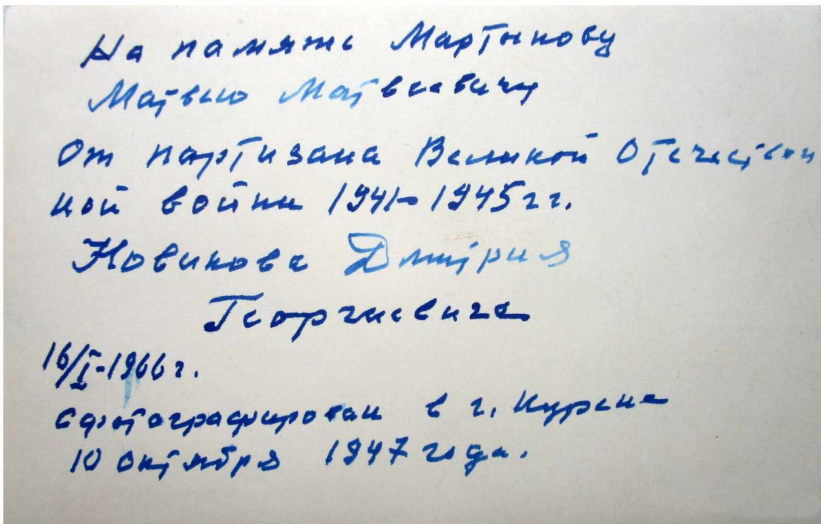 На память Мартынову
Матвею Матвеевичу
От партизана Великой Отечествен
ной войны 1941-1945 гг.
Новикова Дмитрия
Георгиевича
16/I-1966 г.
Сфотографирован в г. Курске
10 октября 1947 года.